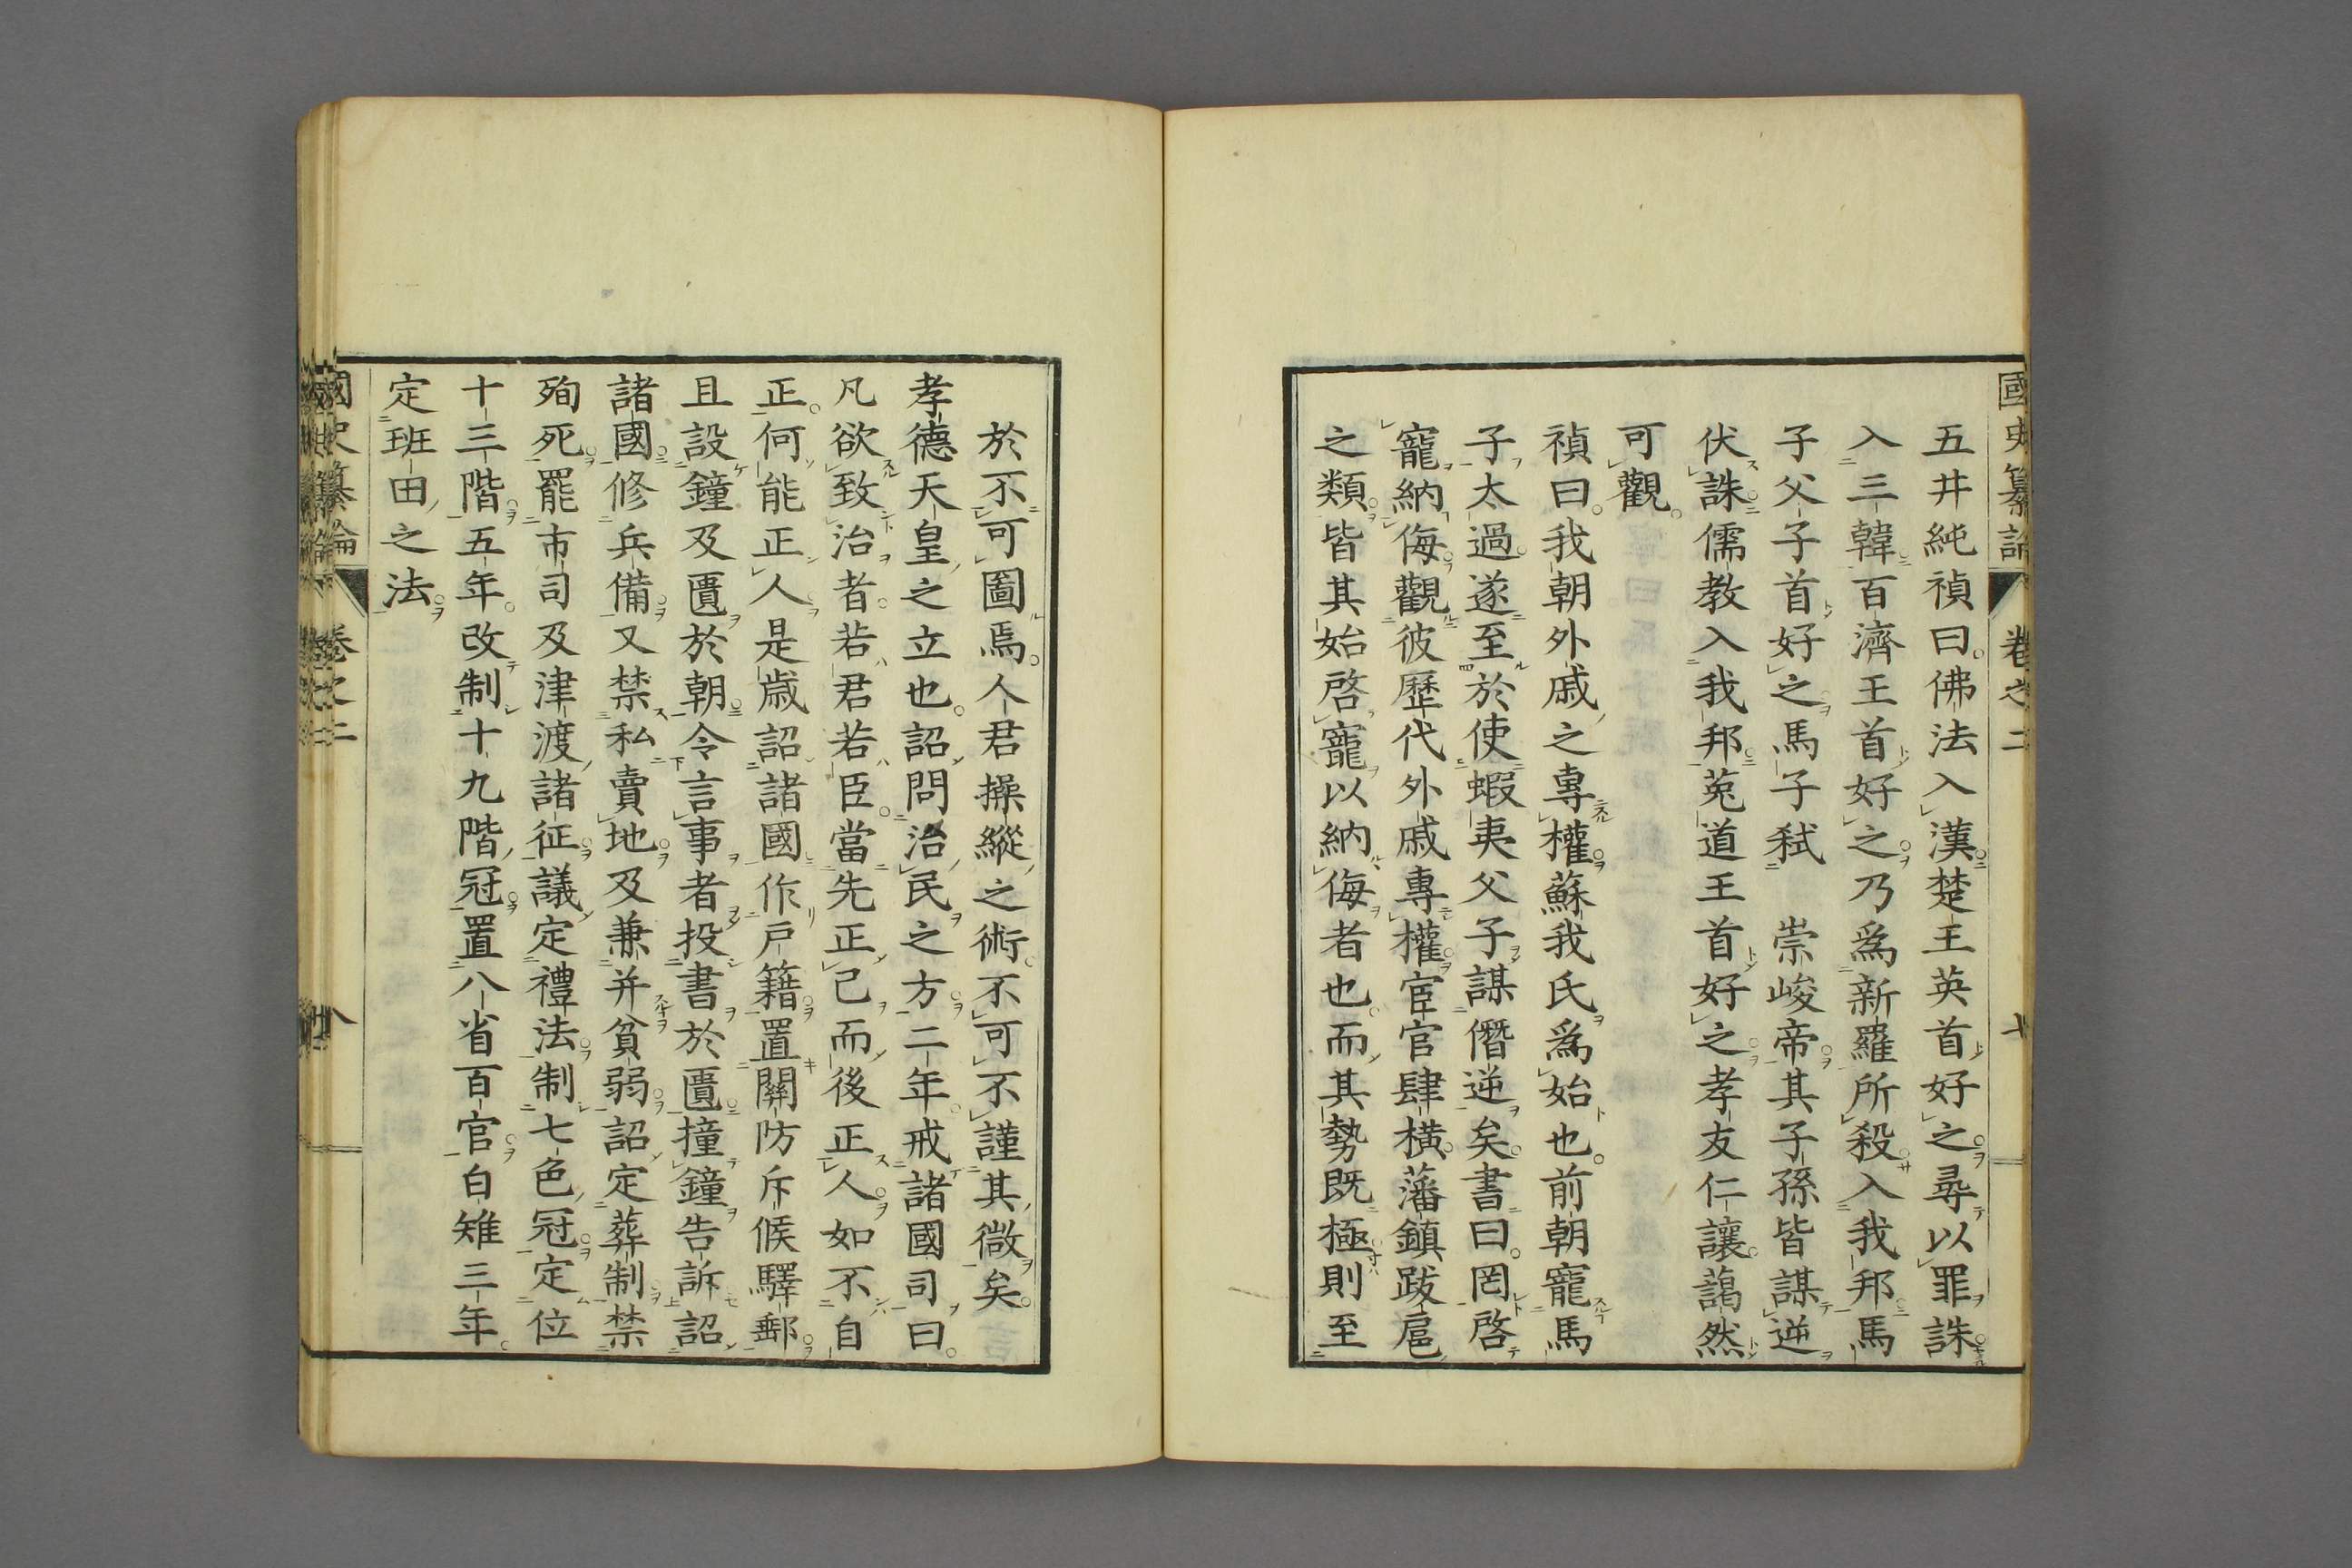 國史纂論 卷之二 七
五井純禎曰佛法入漢楚王英首好之尋以罪誅
入三韓百濟王首好之乃爲新羅所殺入我邦馬
子父子首好之馬子弑　崇峻帝其子孫皆謀逆
伏誅儒教入我邦菟道王首好之孝友仁讓藹然
可觀
禎曰我朝外戚之專權蘇我氏爲始也前朝寵馬
子太過遂至於使蝦夷父子謀僭逆矣書曰罔啓
寵納侮觀彼歷代外戚專權宦官肆橫藩鎮跋扈
之類皆其始啓寵以納侮者也而其勢既極則至
於不可圖焉人君操縱之術不可不謹其微矣
孝德天皇之立也詔問治民之方二年戒諸國司曰
凡欲致治者若君若臣當先正己而後正人如不自
正何能正人是歲詔諸國作戸籍置關防斥候驛郵
且設鐘及匱於朝令言事者投書於匱撞鐘告訴詔
諸國修兵備又禁私賣地及兼并貧弱詔定葬制禁
殉死罷市司及津渡諸征議定禮法制七色冠定位
十三階五年改制十九階冠置八省百官白雉三年
定班田之法
國史纂論 卷之二 八